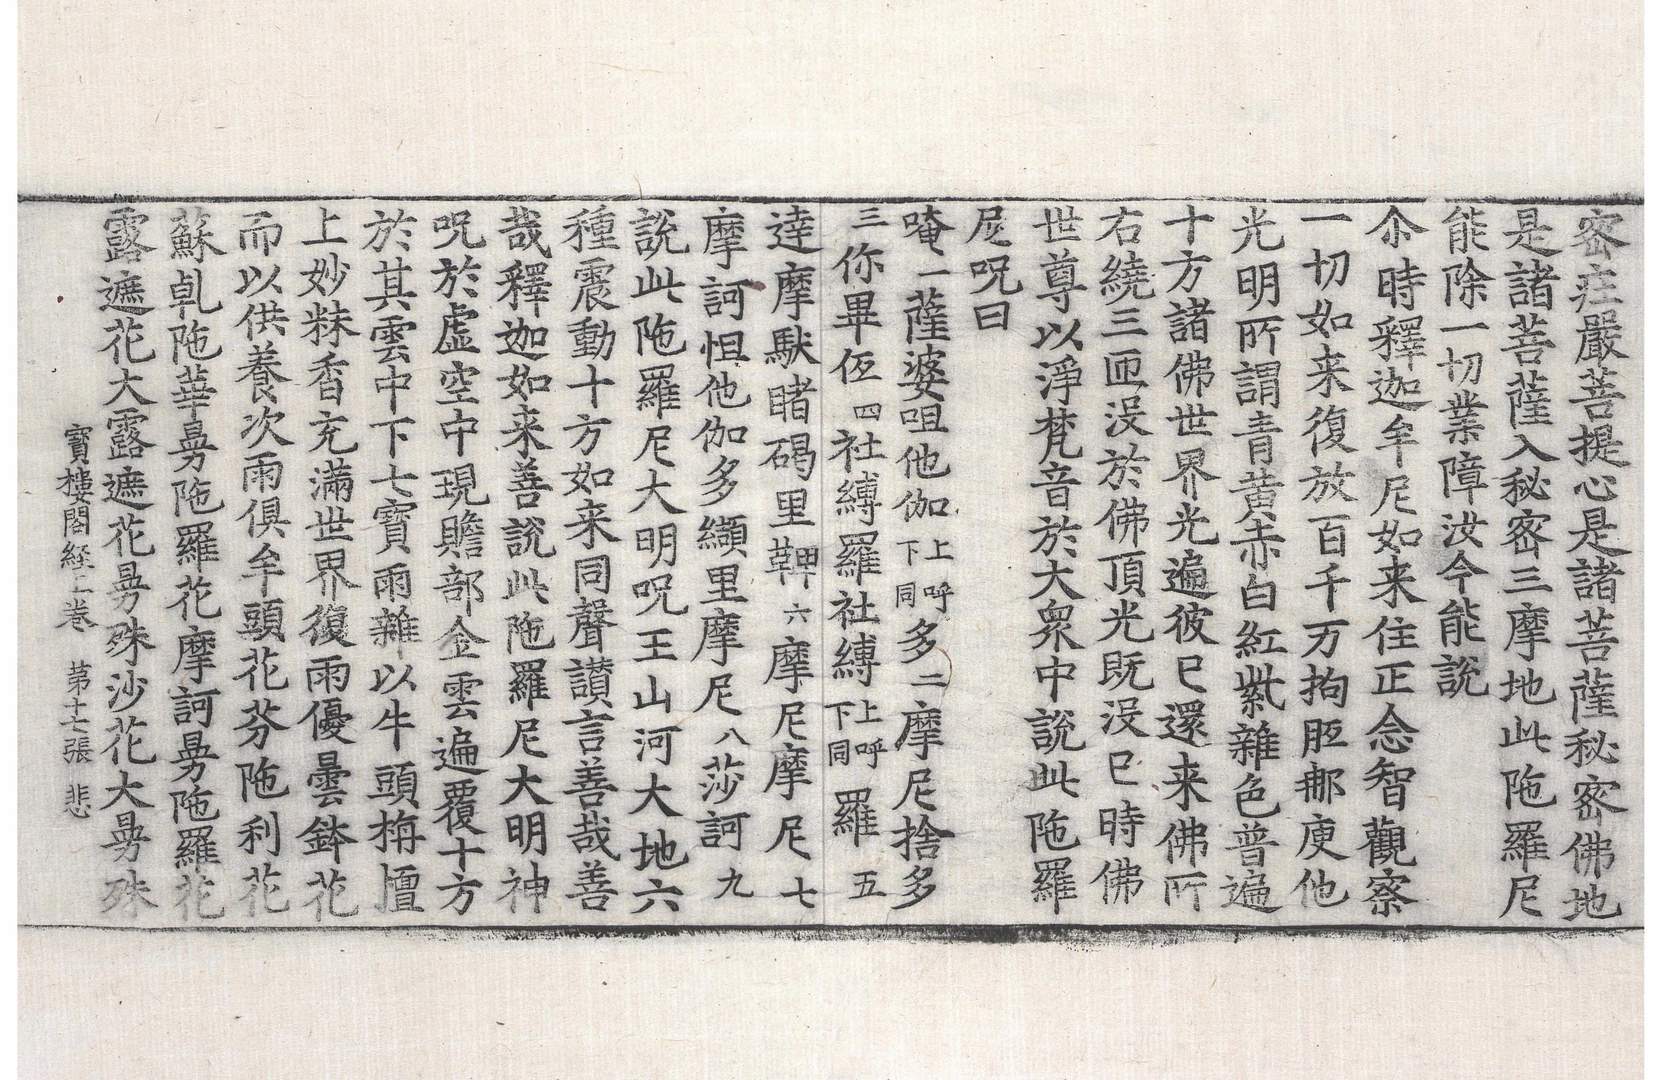 密庄嚴菩提心是諸菩薩秘密佛地
是諸菩薩入秘密三摩地此陁羅尼
能除一切業障汝今能說
尒時釋迦牟尼如来住正念智觀察
一切如来復放百千万拘胝那庾他
光明所謂青黃赤白紅紫雜色普遍
十方諸佛世界光遍彼已還来佛所
右繞三匝没於佛頂光既没已時佛
世尊以淨梵音於大衆中說此陁羅
尼呪曰
唵一薩婆咀他伽上呼下同多二摩尼捨多
三你畢㑚四社縛羅社縛上呼下同羅五
達摩馱睹碣里鞞六摩尼摩尼七
摩訶怛他伽多纈里摩尼八莎訶九
說此陁羅尼大明呪王山河大地六
種震動十方如来同聲讃言善哉善
哉釋迦如来善說此陁羅尼大明神
呪於虛空中現贍部金雲遍覆十方
於其雲中下七寶雨雜以牛頭栴檀
上妙粖香充滿世界復雨優曇鉢花
而以供養次雨俱牟頭花芬陁利花
蘇乹陁華曼陁羅花摩訶曼陁羅花
露遮花大露遮花曼殊沙花大曼殊
寶樓閣經上卷 苐十七張 悲